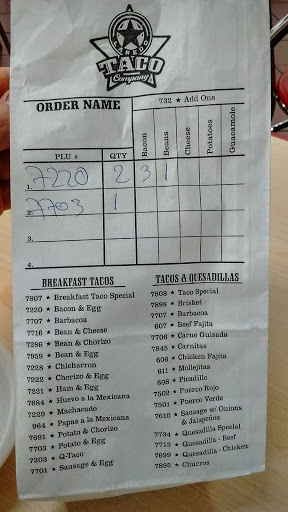 TACO
Company
ORDER NAME
732 ★ Add Ons
PLU #
QTY
Bacon
Beans
Cheese
Potatoes
Guacamole
1. 7220 2 3 1
2. 7703 1
3.
4.
BREAKFAST TACOS
7907 ★ Breakfast Taco Special
7220 ★ Bacon & Egg
7707 ★ Barbacoa
7716 ★ Bean & Cheese
7286 ★ Bean & Chorizo
7959 ★ Bean & Egg
7228 ★ Chicharron
7222 ★ Chorizo & Egg
7231 ★ Ham & Egg
7684 ★ Huevo a la Mexicana
7229 ★ Machacado
964 ★ Papas a la Mexicana
7691 ★ Potato & Chorizo
7703 ★ Potato & Egg
7303 ★ Q-Taco
7701 ★ Sausage & Egg
TACOS & QUESADILLAS
7808 ★ Taco Special
7898 ★ Brisket
7707 ★ Barbacoa
607 ★ Beef Fajita
7706 ★ Carne Guisada
7845 ★ Carnitas
606 ★ Chicken Fajita
611 ★ Mollejitas
608 ★ Picadillo
7502 ★ Puerco Rojo
7501 ★ Puerco Verde
7610 ★ Sausage w/ Onions
& Jalapeños
7734 ★ Quesadilla Special
7712 ★ Quesadilla - Beef
7699 ★ Quesadilla - Chicken
7895 ★ Churros